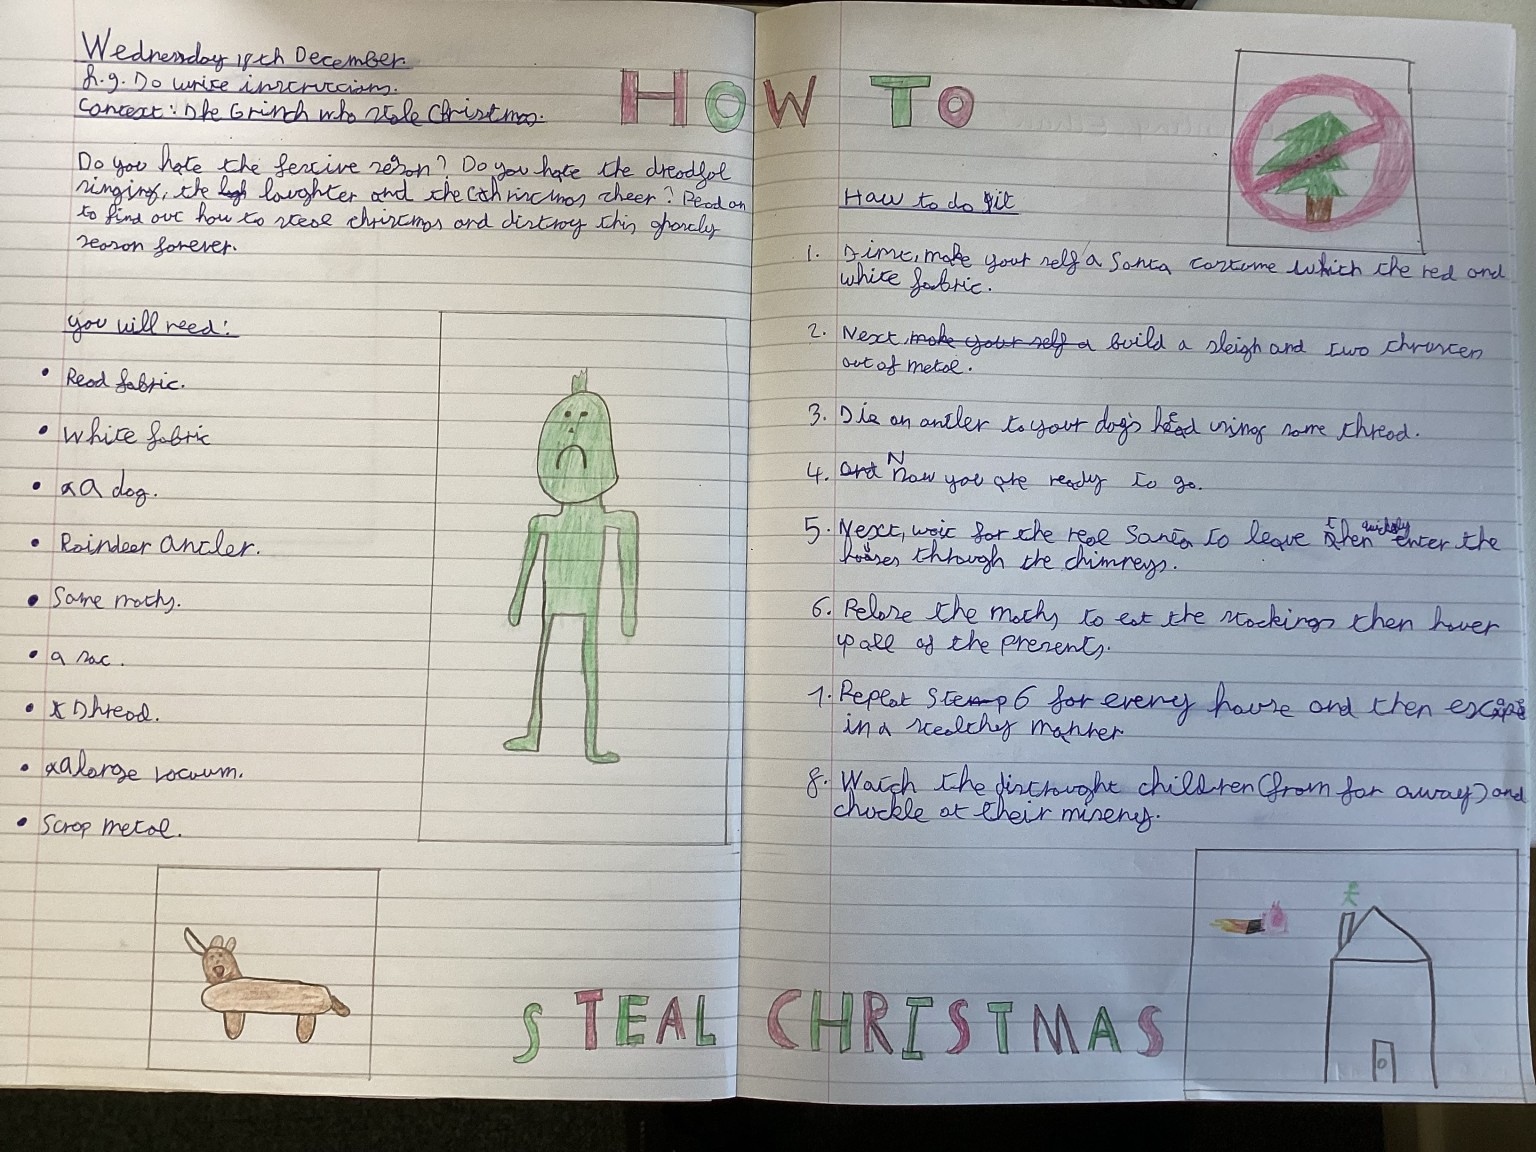 Wednesday 18th December.
L.g. To write instructions.
Context: The Grinch who stole Christmas.
HOW TO
Do you hate the festive seson? Do you hate the dreadful
singing, the laughter and the Christmas cheer? Read on
to find out how to steal christmas and distroy this ghastly
season forever.
you will need:
• Read fabric.
• White fabric
• A dog.
• Raindeer antler.
• Some moths.
• a sac.
• Thread.
• a large vacuum.
• Scrap metal.
How to do it
1. Firsc, make your self a Santa costume which the red and
white fabric.
2. Next, make your self a build a sleigh and two thrusters
out of metal.
3. Tie an antler to your dog's head using some thread.
4. and Now you are ready to go.
5. Next, wait for the real Santa to leave then quickly enter the
houses through the chimneys.
6. Relase the moths to eat the stockings then hover
up all of the presents.
7. Repeat Step 6 for every house and then escape
in a stealthy manner
8. Watch the distraught children (from far away) and
chuckle at their misery.
STEAL CHRISTMAS